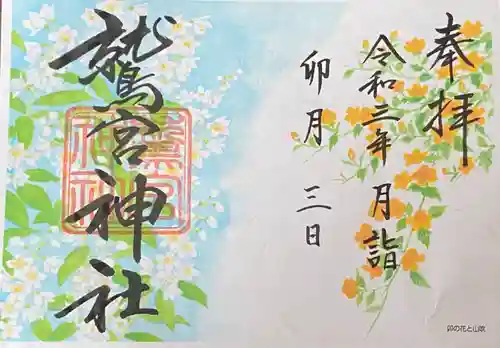 奉拝
令和三年 月詣
卯月 三日
鷲宮神社
鷲宮
神社
卯の花と山吹